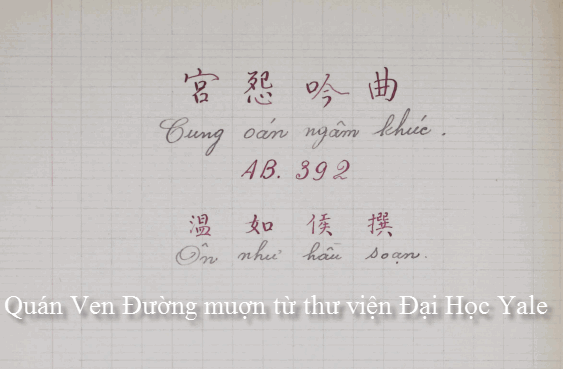 宮怨吟曲
Cung oán ngâm khúc.
AB. 392
溫如侯撰
Ôn như hầu soạn.
Quán Ven Đường muợn từ thư viện Đại Học Yale